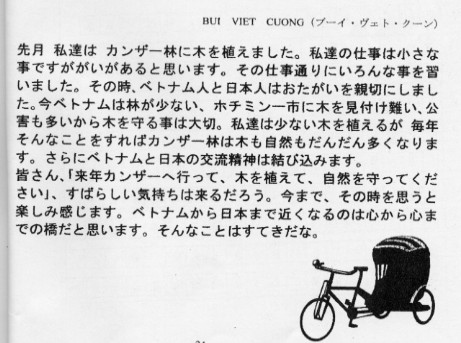 BUI VIET CUONG（ブーイ・ヴェト・クーン）
先月 私達は カンザー林に木を植えました。私達の仕事は小さな
事ですががいがあると思います。その仕事通りにいろんな事を習
いました。その時、ベトナム人と日本人はおたがいを親切にしまし
た。今ベトナムは林が少ない、ホチミン一市に木を見付け難い、公
害も多いから木を守る事は大切。私達は少ない木を植えるが 毎年
そんなことをすればカンザー林は木も自然もだんだん多くなりま
す。さらにベトナムと日本の交流精神は結び込みます。
皆さん、「来年カンザーへ行って、木を植えて、自然を守ってくだ
さい」、すばらしい気持ちは来るだろう。今まで、その時を思うと
楽しみ感じます。ベトナムから日本まで近くなるのは心から心ま
での橋だと思います。そんなことはすてきだな。